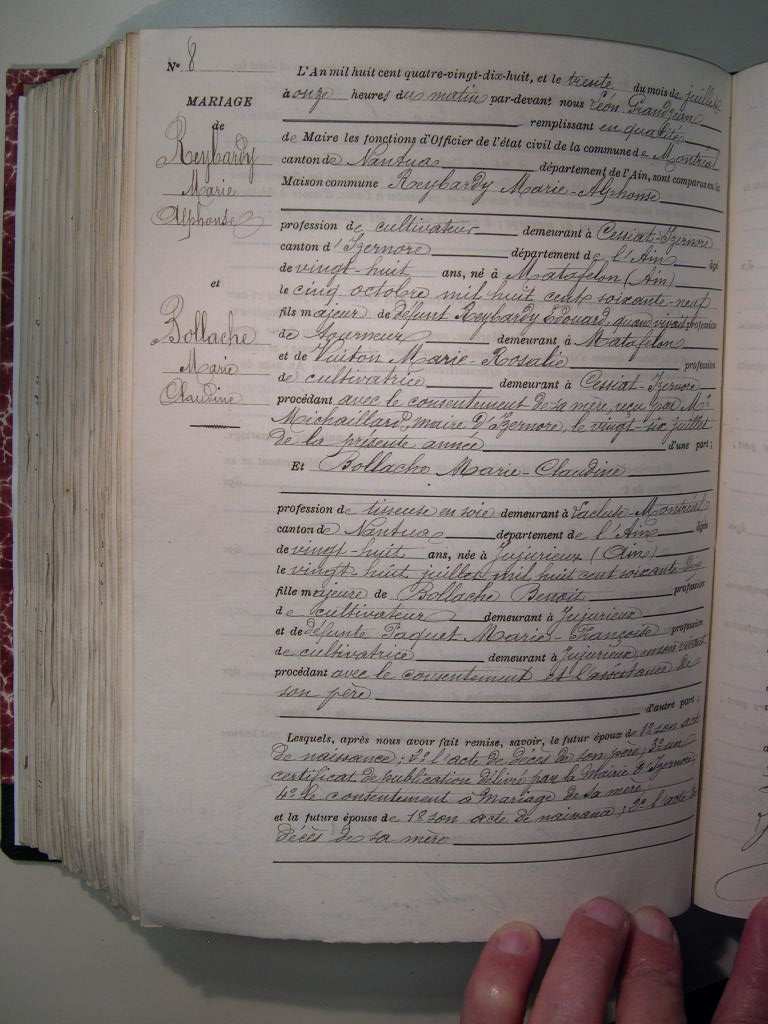 N° 8
MARIAGE
de
Reybardy
Marie
Alphonse
et
Bollache
Marie
Claudine
L'An mil huit cent quatre-vingt-dix-huit, et le trente du mois de juillet
à onze heures du matin par-devant nous Léon Grandjean
remplissant en qualité
de Maire les fonctions d'Officier de l'état civil de la commune de Montréal
canton de Nantua département de l'Ain, sont comparus en la
Maison commune Reybardy Marie-Alphonse
profession de cultivateur demeurant à Cessiat-Izernore
canton d'Izernore département de l'Ain âgé
de vingt-huit ans, né à Matafelon (Ain)
le cinq octobre mil huit cent soixante-neuf
fils majeur de défunt Reybardy Edouard, quand vivait profession
de tourneur demeurant à Matafelon
et de Tuiton Marie-Rosalie profession
de cultivatrice demeurant à Cessiat-Izernore
procédant avec le consentement de sa mère, reçu par Mr
Michaillard, maire d'Izernore, le vingt-six juillet
de la présente année d'une part;
Et Bollache Marie-Claudine
profession de tisseuse en soie demeurant à Lacluse-Montréal
canton de Nantua département de l'Ain âgée
de vingt-huit ans, née à Jujurieux (Ain)
le vingt huit juillet mil huit cent soixante-dix
fille majeure de Bollache Benoit profession
de cultivateur demeurant à Jujurieux
et de défunte Paquet Marie-Françoise profession
de cultivatrice demeurant à Jujurieux, en son vivant
procédant avec le consentement et l'assistance de
son père
d'autre part;
Lesquels, après nous avoir fait remise, savoir, le futur époux de 1° son acte
de naissance; 2° l'acte de décès de son père; 3° un
certificat de publication délivré par la Mairie d'Izernore
4° le consentement à mariage de sa mère;
et la future épouse de 1° son acte de naissance; 2° l'acte de
décès de sa mère